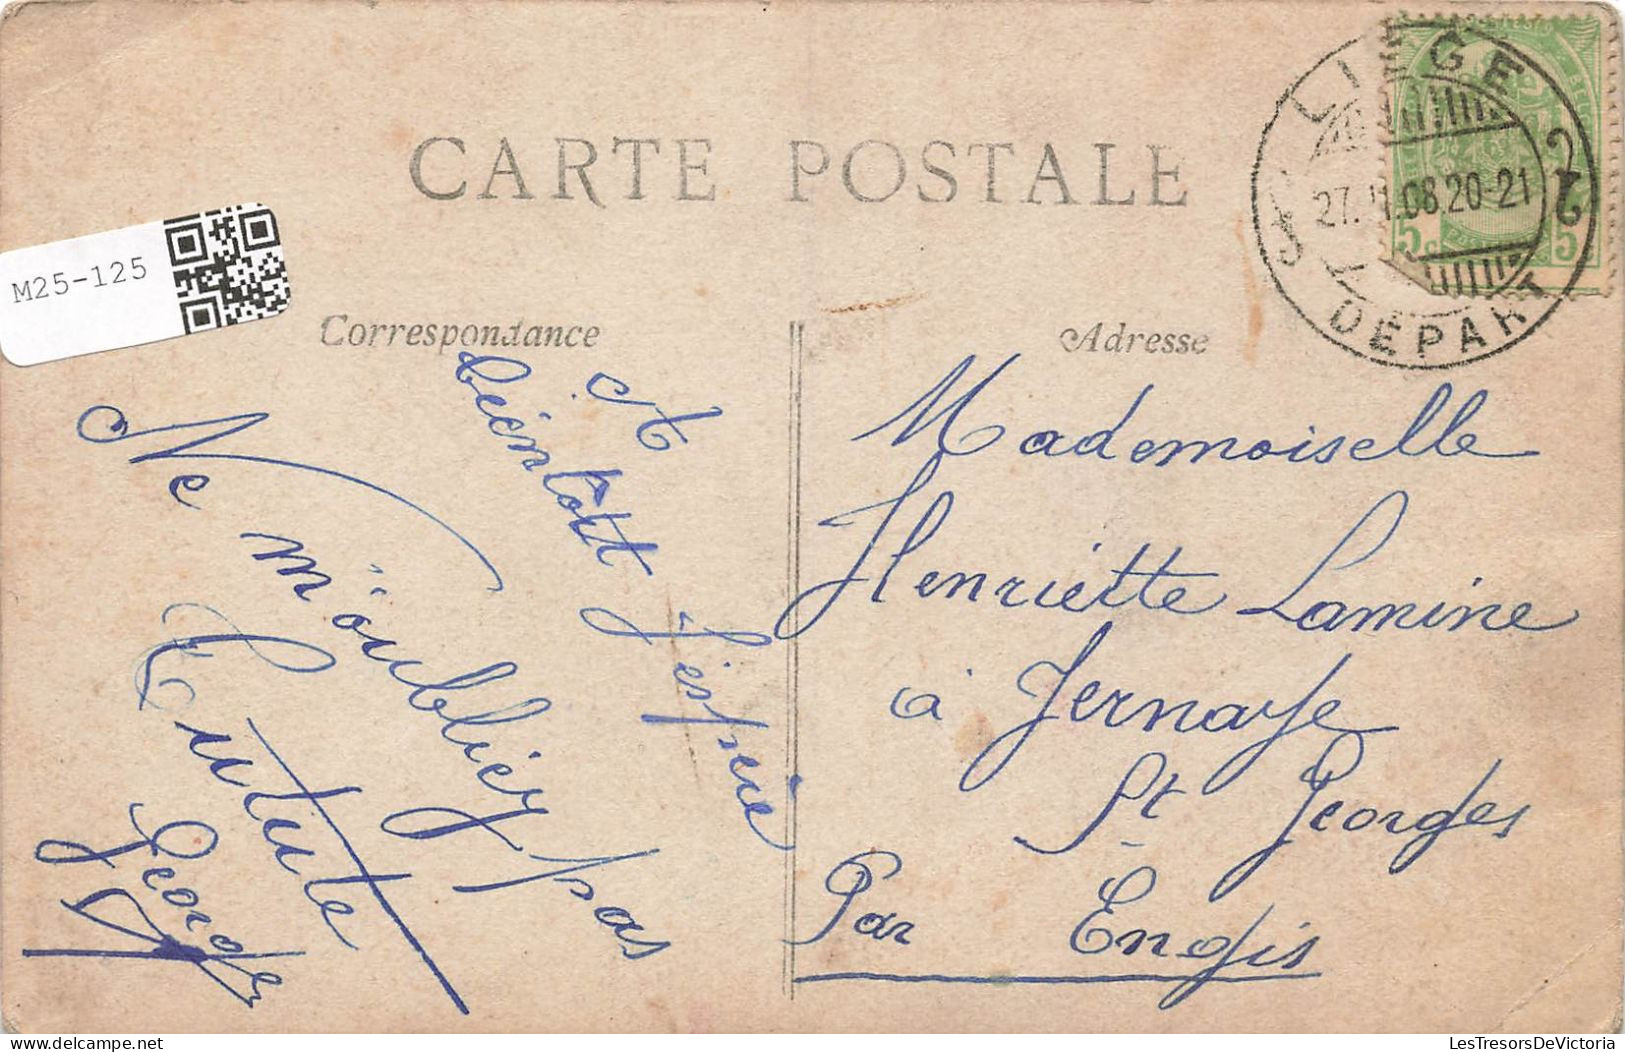 CARTE POSTALE
LIEGE
27. 11.08.20-21
DEPART
5c
5
M25-125
Correspondance
Adresse
A
bientôt
j'espère
Ne m'oubliez pas
Georges
Mademoiselle
Henriette Lamine
à Jernaye
St Georges
Par Engis
delcampe.net
LesTresorsDeVictoria